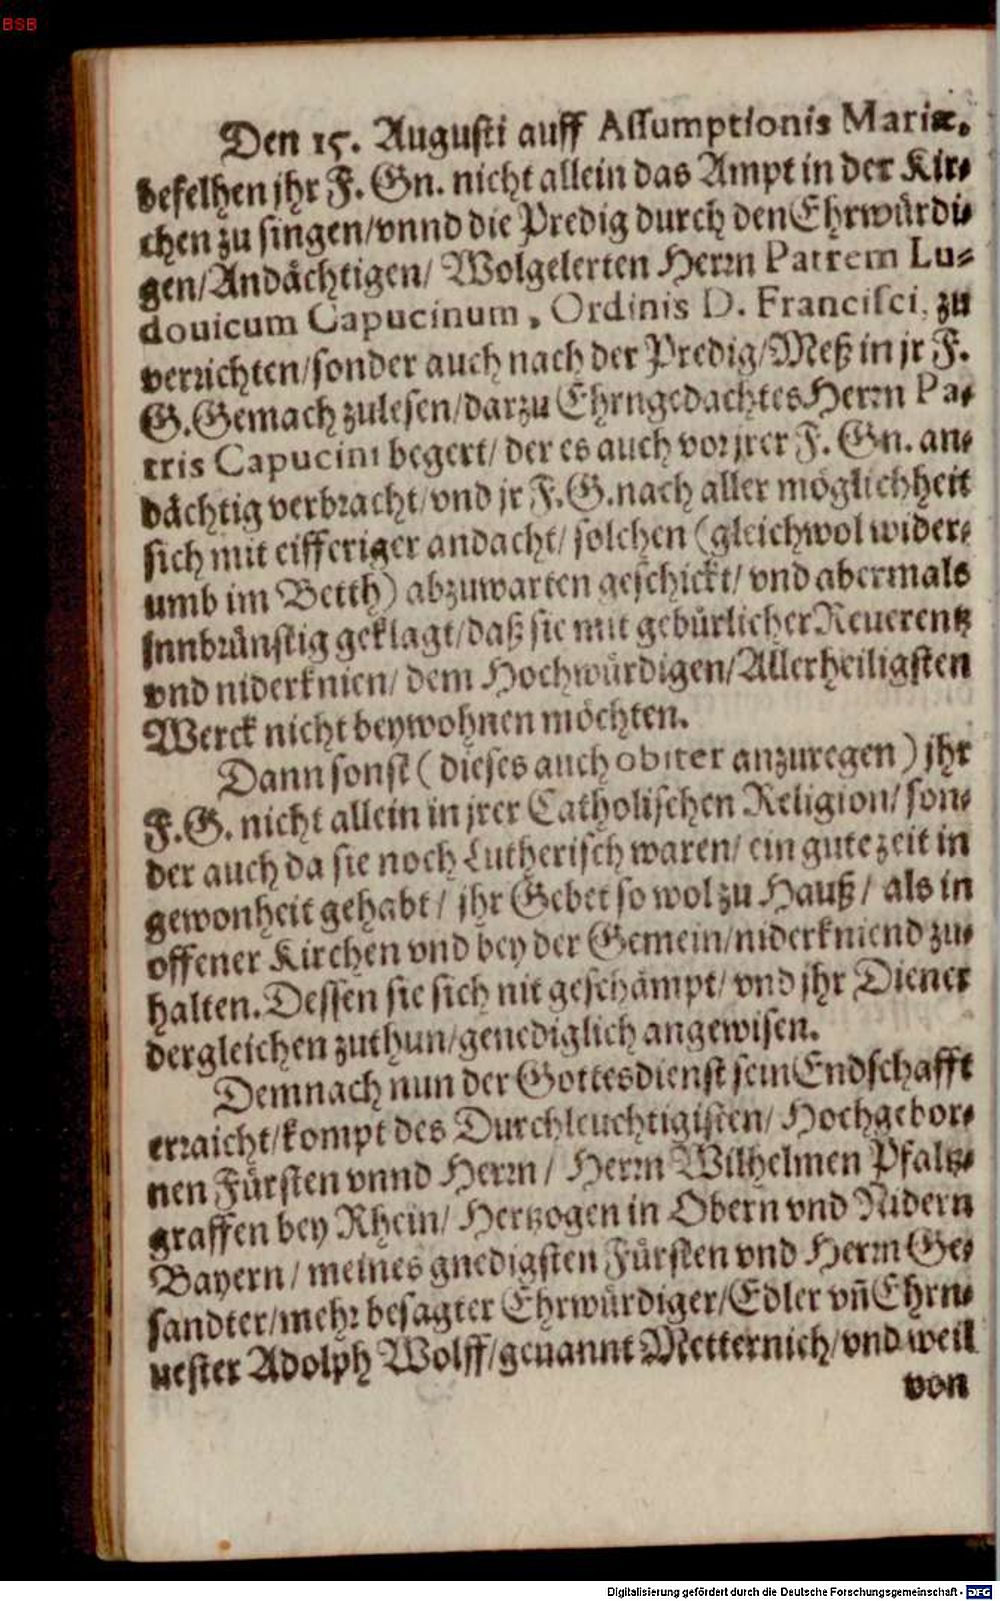 BSB
Den 15. Augusti auff Assumptionis Mariæ,
befelhen jhr F. Gn. nicht allein das Ampt in der Kir-
chen zu singen/vnnd die Predig durch den Ehrwürdi-
gen/Andächtigen/ Wolgelerten Herrn Patrem Lu-
douicum Capucinum, Ordinis D. Francisci, zu
verrichten/sonder auch nach der Predig/Meß in jr F.
G. Gemach zulesen/darzu Ehrngedachtes Herrn Pa-
tris Capucini begert/ der es auch vor jrer F. Gn. an-
dächtig verbracht/vnd jr F.G. nach aller möglichheit
sich mit eifferiger andacht/ solchen (gleichwol wider-
umb im Betth) abzuwarten geschickt/ vnd abermals
jnnbrünstig geklagt/daß sie mit gebürlicher Reuerentz
vnd niderknien/ dem Hochwürdigen/Allerheiligsten
Werck nicht beywohnen möchten.
Dann sonst (dieses auch obiter anzuregen) jhr
F.G. nicht allein in jrer Catholischen Religion/ son-
der auch da sie noch Lutherisch waren/ ein gute zeit in
gewonheit gehabt/ jhr Gebet so wol zu Hauß/ als in
offener Kirchen vnd bey der Gemein/niderkniend zu-
halten. Dessen sie sich nit geschämpt/ vnd jhr Diener
dergleichen zuthun/genediglich angewisen.
Demnach nun der Gottesdienst sein Endschafft
erraicht/kompt des Durchleuchtigisten/ Hochgebor-
nen Fürsten vnnd Herrn/ Herrn Wilhelmen Pfaltz-
graffen bey Rhein/ Hertzogen in Obern vnd Nidern
Bayern/ meines gnedigsten Fürsten vnd Herrn Ge-
sandter/mehr besagter Ehrwürdiger/Edler vñ Ehrn-
uester Adolph Wolff/genannt Metternich/vnd weil
von
Digitalisierung gefördert durch die Deutsche Forschungsgemeinschaft - DFG